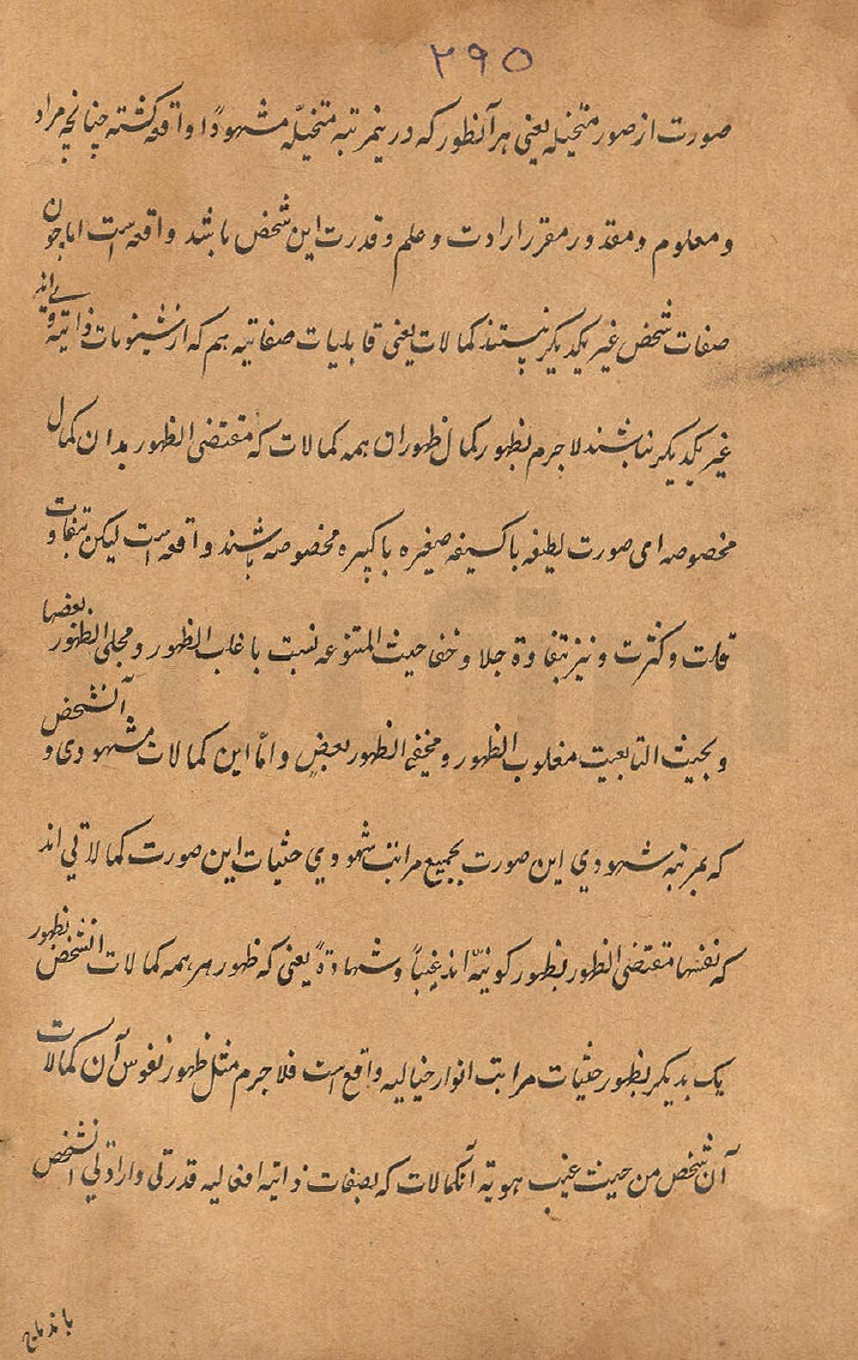 ۲۹۵
صورت از صور متخیله یعنی هر آنظور که درینمرتبه متخیّله مشهودًا واقعه کشته چنانچه مراد
و معلوم و مقدور مقرر ارادت و علم و قدرت این شخص باشد واقعه است اما چون
صفات شخص غیر یکدیکر نیستند کمالات یعنی قابلیات صفاتیه هم که از شیٔونات ذاتیه وے اند
غیر یکدیکر نباشند لاجرم بظهور کمال ظهوران همه کمالات که مقتضی الظهور بدان کمال
مخصوصه ای صورت لطیفه یا کسیفه صغیره یا کبیره مخصوصه باشند واقعه است لیکن بتفاوت
قلت و کثرت و نیز بتفاوة جلا و خفا حیث المتنوعه نسبت با غلب الظهور و مجلی الظهور بعضها
و بحیث التابعیت مغلوب الظهور و مخفی الظهور بعضٍ و امّا این کمالات مشهودی و آنشخص
که بمرتبه شهودي این صورت بجمیع مراتب شهودي حثیات این صورت کمالاتی اند
که نفسها مقتضی الظهور بظهور کونیّه اند غیباً و شهادةً یعنی که ظهور هر همه کمالات انشخص بظهور
یک بدیکر بظهور حثیات مراتب انوار خیالیه واقع است فلاجرم مثل ظهور نفوس آن کمالات
آن شخص من حیث غیب هویة آنکمالات که بصفات ذاتیه افعالیه قدرتی و ارادتی الشخص